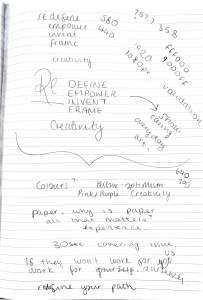 re define 580
empower 440
invent
frame
757? 358
creativity
1920
1080px
ffff00
9900ff
validation
Re DEFINE
EMPOWER
INVENT
FRAME
Creativity
show
everyday
art.
640
Colours? Yellow - optimism
Pink/Purple: Creativity
paper. why is paper
all that matters?
experience.
30sec covering issue
If they won't work for us
work for yourself.
redefine your path